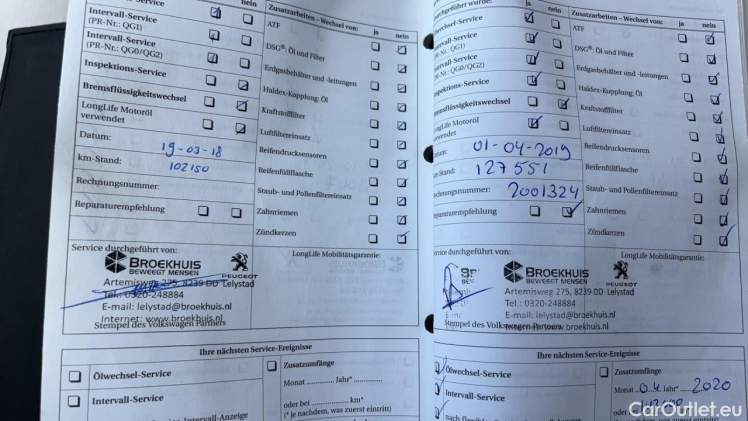 nein
Zusatzarbeiten - Wechsel von: ja nein
Intervall-Service
(PR-Nr.: QG1)
Intervall-Service
(PR-Nr.: QG0/QG2)
Inspektions-Service
Bremsflüssigkeitswechsel
LongLife Motoröl
verwendet
Datum: 19-03-18
km-Stand: 102150
Rechnungsnummer:
Reparaturempfehlung
ATF
DSG®: Öl und Filter
Erdgasbehälter und -leitungen
Haldex-Kupplung: Öl
Kraftstofffilter
Luftfiltereinsatz
Reifendrucksensoren
Reifenfüllflasche
Staub- und Pollenfiltereinsatz
Zahnriemen
Zündkerzen
Service durchgeführt von:
LongLife Mobilitätsgarantie:
BROEKHUIS
BEWEEGT MENSEN
PEUGEOT
Artemisweg 275, 8239 DD Lelystad
Tel.: 0320-248884
E-mail: lelystad@broekhuis.nl
Internet: www.broekhuis.nl
Stempel des Volkswagen Partners
Ihre nächsten Service-Ereignisse
Ölwechsel-Service
Intervall-Service
Zusatzumfänge
Monat Jahr*
oder bei km*
(* je nachdem, was zuerst eintritt)
durchgeführt wurde: ja nein
Zusatzarbeiten - Wechsel von: ja nein
wechsel-Service
ervall-Service
R-Nr.: QG1)
ervall-Service
R-Nr.: QG0/QG2)
pektions-Service
emsflüssigkeitswechsel
ngLife Motoröl
wendet
um: 01-04-2019
Stand: 127551
chnungsnummer: 2001324
paraturempfehlung
ATF
DSG®: Öl und Filter
Erdgasbehälter und -leitungen
Haldex-Kupplung: Öl
Kraftstofffilter
Luftfiltereinsatz
Reifendrucksensoren
Reifenfüllflasche
Staub- und Pollenfiltereinsatz
Zahnriemen
Zündkerzen
vice durchgeführt von:
LongLife Mobilitätsgarantie:
BROEKHUIS
BEWEEGT MENSEN
PEUGEOT
Artemisweg 275, 8239 DD Lelystad
Tel.: 0320-248884
E-mail: lelystad@broekhuis.nl
Internet: www.broekhuis.nl
Stempel des Volkswagen Partners
Ihre nächsten Service-Ereignisse
Ölwechsel-Service
Intervall-Service
Zusatzumfänge
Monat 04 Jahr* 2020
oder bei
(* je nachdem, was zuerst eintritt)
CarOutlet.eu